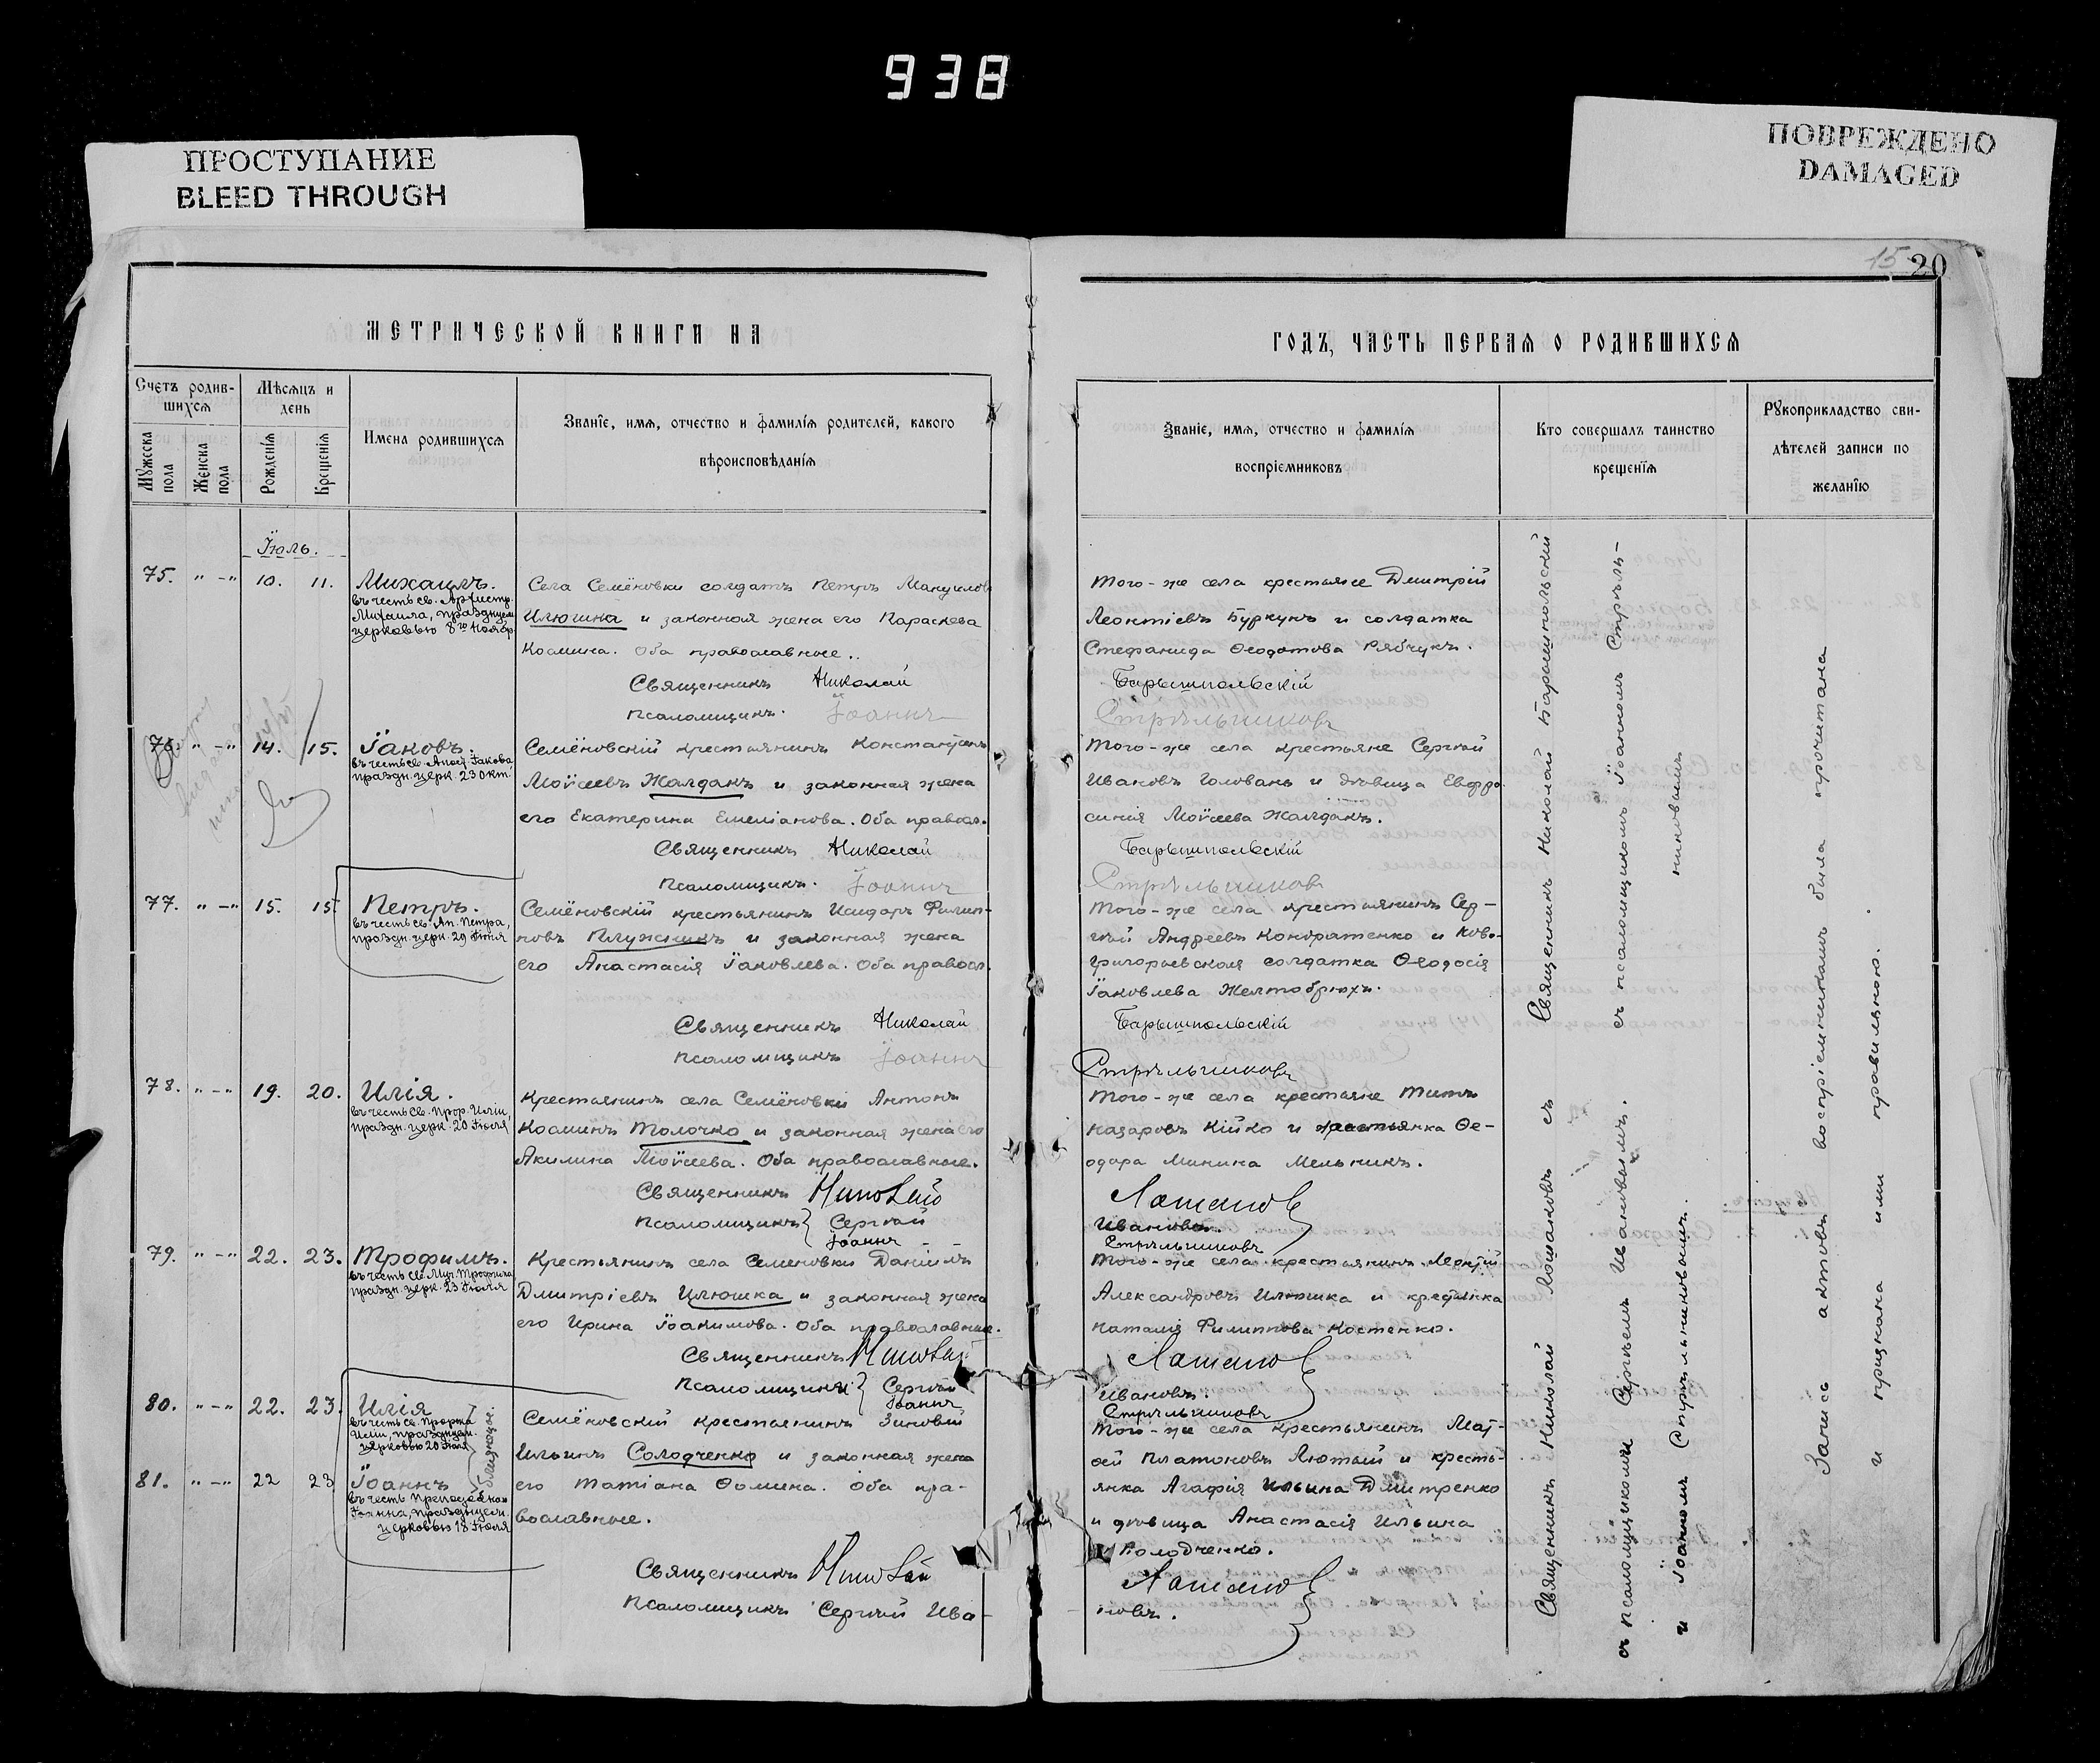 938
ПРОСТУПАНИЕ
BLEED THROUGH
ПОВРЕЖДЕНО
DAMAGED
15 20
МЕТРИЧЕСКОЙ КНИГИ НА
Счетъ родив-
шихся
Мѣсяцъ и
день
Мужеска
пола
Женска
пола
Рожденія
Крещенія
Имена родившихся
Званіе, имя, отчество и фамилія родителей, какого
вѣроисповѣданія
Іюль.
75. " — " 10. 11.
Михаилъ.
въ честь св. Архистр.
Михаила, празднуем.
церковью 8го Ноябр.
Села Семёновки солдатъ Петръ Мануилов
Илюшина и законная жена его Параскева
Космина. Оба православные..
Священникъ Николай
Псаломщикъ. Іоаннъ
76. " — " 14. 15.
Іаковъ.
въ честь св. Апост. Іакова
праздн. церк. 23 Окт.
Семёновскій крестьянинъ Константинъ
Моѵсеевъ Жалданъ и законная жена
его Екатерина Емеліанова. Оба правосл.
Священникъ Николай
Псаломщикъ. Іоаннъ
77. " — " 15. 15.
Петръ.
въ честь св. Ап. Петра,
праздн. церк. 29 Іюня
Семёновскій крестьянинъ Исидоръ Филип-
повъ Плужникъ и законная жена
его Анастасія Іаковлева. Оба правосл.
Священникъ Николай
Псаломщикъ Іоаннъ
78. " — " 19. 20.
Илія.
въ честь св. Прор. Иліи,
праздн. церк. 20 Іюля
Крестьянинъ села Семёновки Антонъ
Косминъ Толочко и законная жена его
Акилина Моѵсеева. Оба православные.
Священникъ Николай
Псаломщикъ } Сергѣй
Іоаннъ
79. " — " 22. 23.
Трофимъ.
въ честь св. Муч. Трофима
праздн. церк. 23 Іюля
Крестьянинъ села Семеновки Даніилъ
Дмитріевъ Илюшка и законная жена
его Ирина Іоакимова. Оба православные.
Священникъ Николай
Псаломщики } Сергѣй
Іоаннъ
80. " — " 22. 23.
Илія
въ честь св. Пророка
Иліи, празднуем.
церковью 20 Іюля
близнецы.
Семёновскій крестьянинъ Зиновій
Ильинъ Солодченко и законная жена
81. " — " 22 23
Іоаннъ
въ честь Преподобнаго
Іоанна, празднуем.
церковью 18 Іюля
его Татіана Ѳомина. Оба пра-
вославные.
Священникъ Николай
Псаломщикъ Сергѣй Ива-
ГОДЪ, ЧАСТЬ ПЕРВАЯ О РОДИВШИХСЯ
Званіе, имя, отчество и фамилія
воспріемниковъ
Кто совершалъ таинство
крещенія
Рукоприкладство сви-
дѣтелей записи по
желанію
Того-же села крестьяне Дмитрій
Леонтіевъ Буркунъ и солдатка
Стефанида Ѳеодотова Рябчукъ.
Барышпольскій
Стрѣльниковъ
Того-же села крестьяне Сергѣй
Ивановъ Головань и дѣвица Евфро-
синія Моѵсеева Жалданъ.
Барышпольскій
Стрѣльниковъ
Того-же села крестьянинъ Сер-
гѣй Андреевъ Кондратенко и Ново-
григорьевская солдатка Ѳеодосія
Іаковлева Желтобрюхъ.
Барышпольскій
Стрѣльниковъ
Того-же села крестьяне Титъ
Назаровъ Кійко и крестьянка Ѳе-
одора Минина Мельникъ.
Лошаков
Ивановъ.
Стрѣльниковъ
Того-же села крестьянинъ Леонтій
Александровъ Илюшка и крестьянка
Наталія Филиппова Костенко.
Лошаков
Ивановъ.
Стрѣльниковъ
Того-же села крестьянинъ Мат-
ѳей Платоновъ Лютый и кресть-
янка Агафія Ильина Дмитренко
и дѣвица Анастасія Ильина
Солодченко.
Лошаков
новъ.
Священникъ Николай Барышпольскій
съ псаломщикомъ Іоанномъ Стрѣль-
никовымъ
Священникъ Николай Лошаковъ съ
псаломщиками Сергѣемъ Ивановымъ.
и Іоанномъ Стрѣльниковымъ.
Запись актовъ воспріемникамъ была прочитана
и признана ими правильною.